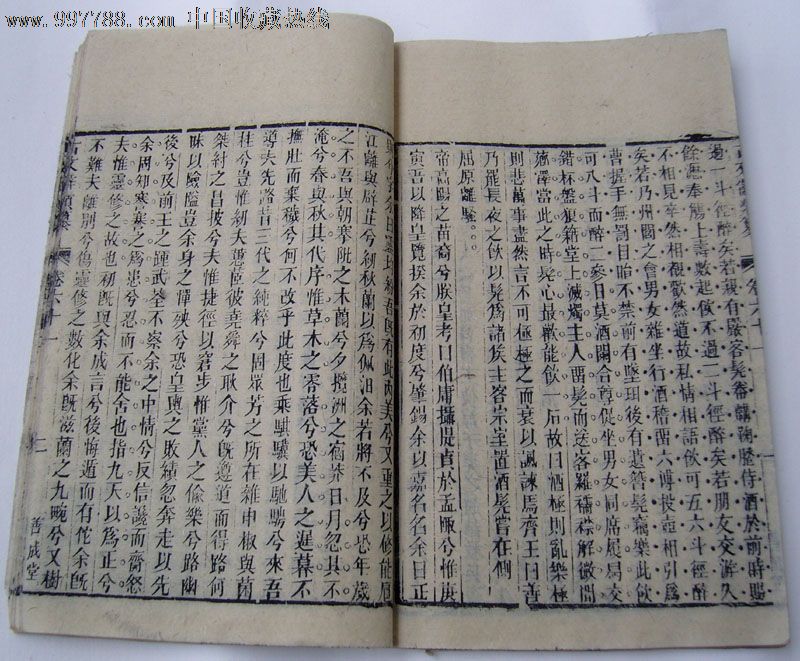 www.997788.com 中国收藏热线
卷六十一
過一斗徑醉矣若親有嚴客髡帣韝鞠䠆侍酒於前時賜
餘瀝奉觴上壽數起飲不過二斗徑醉矣若朋友交游久
不相見卒然相覩歡然道故私情相語飲可五六斗徑醉
矣若乃州閭之會男女雜坐行酒稽留六博投壺相引爲
曹握手無罰目眙不禁前有墮珥後有遺簪髡竊樂此飲
可八斗而醉二參日莫酒闌合尊促坐男女同席履舄交
錯杯盤狼籍堂上滅燭主人畱髡而送客羅襦襟解微聞
薌澤當此之時髡心最歡能飲一石故曰酒極則亂樂極
則悲萬事盡然言不可極極之而衰以諷諫焉齊王曰善
乃罷長夜之飲以髡爲諸侯主客宗室置酒髡嘗在側
屈原離騷
帝高陽之苗裔兮朕皇考曰伯庸攝提貞於孟陬兮惟庚
寅吾以降皇覽揆余於初度兮肇錫余以嘉名名余曰正
吾既有此內美兮又重之以修能扈
江離與辟芷兮紉秋蘭以爲佩汨余若將不及兮恐年歲
之不吾與朝搴阰之木蘭兮夕攬洲之宿莽日月忽其不
淹兮春與秋其代序惟草木之零落兮恐美人之遲暮不
撫壯而棄穢兮何不改乎此度也乘騏驥以馳騁兮來吾
導夫先路昔三代之純粹兮固眾芳之所在雜申椒與菌
桂兮豈惟紉夫蕙茝彼堯舜之耿介兮既遵道而得路何
桀紂之昌披兮夫惟捷徑以窘步惟黨人之偷樂兮路幽
昧以險隘豈余身之憚殃兮恐皇輿之敗績忽奔走以先
後兮及前王之踵武荃不察余之中情兮反信讒而齌怒
余固知謇謇之爲患兮忍而不能舍也指九天以爲正兮
夫惟靈修之故也初既與余成言兮後悔遁而有佗余既
不難夫離別兮傷靈修之數化余既滋蘭之九畹兮又樹
卷六十一
二
善成堂